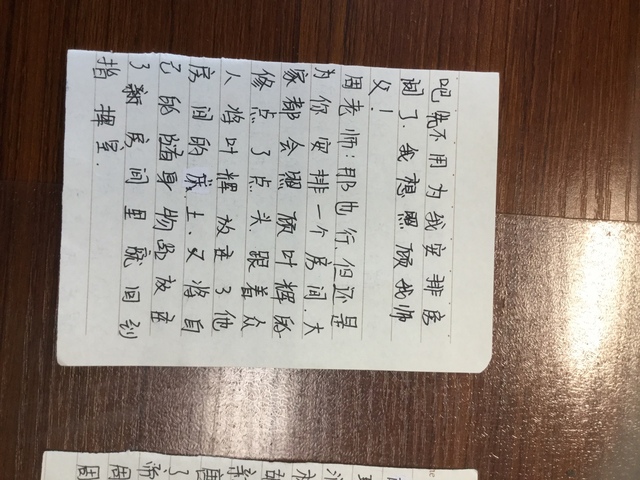 吧先不用为我安排房
间了.我想照顾我师
父!
用老师:那也行.但还是
为你安排一个房间.大
家都会照顾叶辉的
修点了点头.跟着众
人将叶辉放在了他
房间的床上.又将自
己的随身物品放在
了新房间里就回到
指挥室.